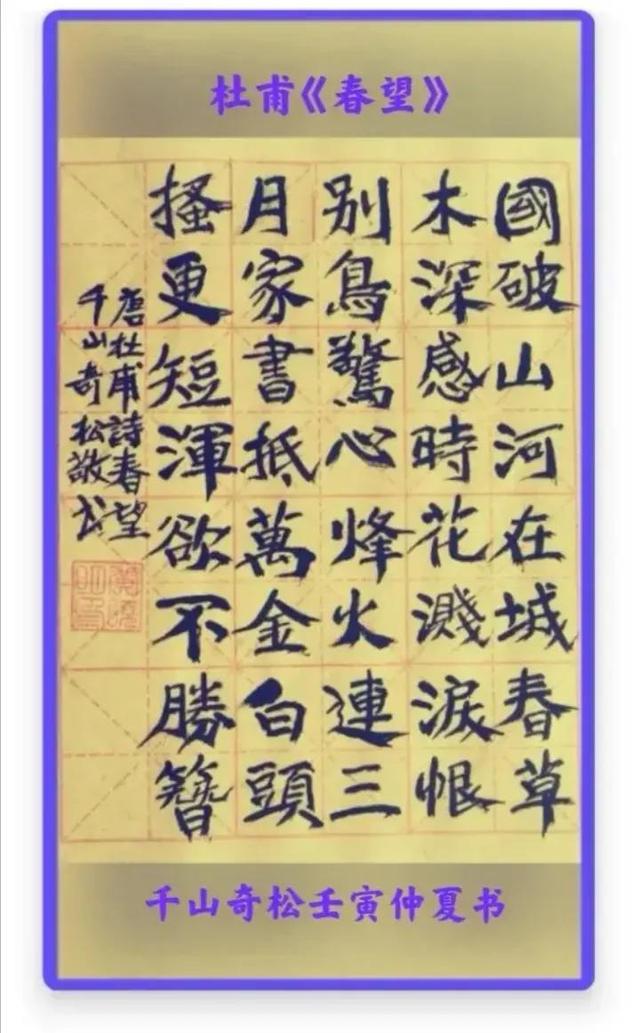 杜甫《春望》
國破山河在城春草
木深感時花濺淚恨
别鳥驚心烽火連三
月家書抵萬金白頭
搔更短渾欲不勝簪
唐杜甫詩春望
千山奇松敬书
千山奇松壬寅仲夏书